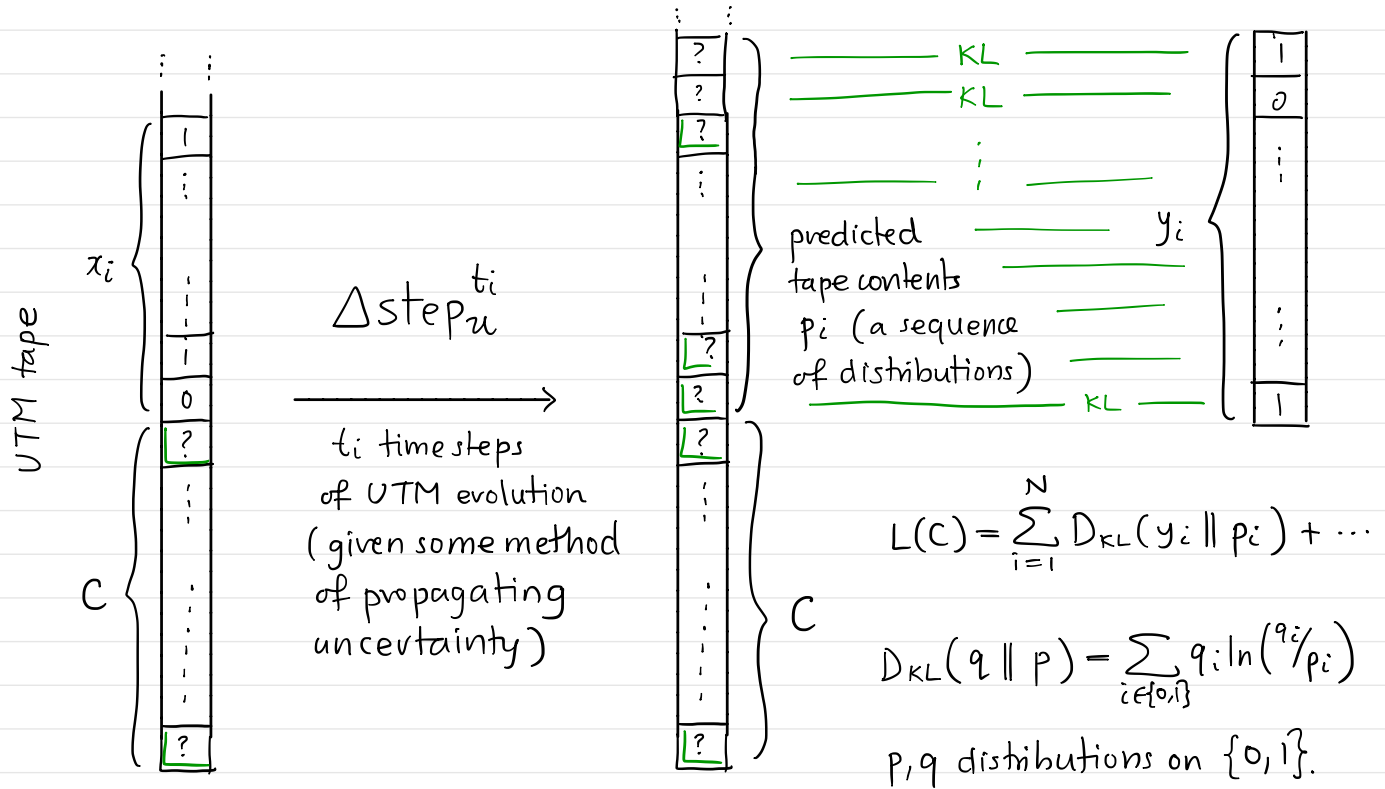 UTM tape
x_i
1
1
0
C
?
?
Δstep_u^{t_i}
t_i time steps
of UTM evolution
(given some method
of propagating
uncertainty)
?
?
?
?
?
?
?
C
KL
KL
predicted
tape contents
p_i (a sequence
of distributions)
KL
y_i
1
0
1
L(C) = \sum_{i=1}^{N} D_{KL}(y_i || p_i) + ...
D_{KL}(q || p) = \sum_{i∈{0,1}} q_i ln(q_i/p_i)
p,q distributions on {0,1}.